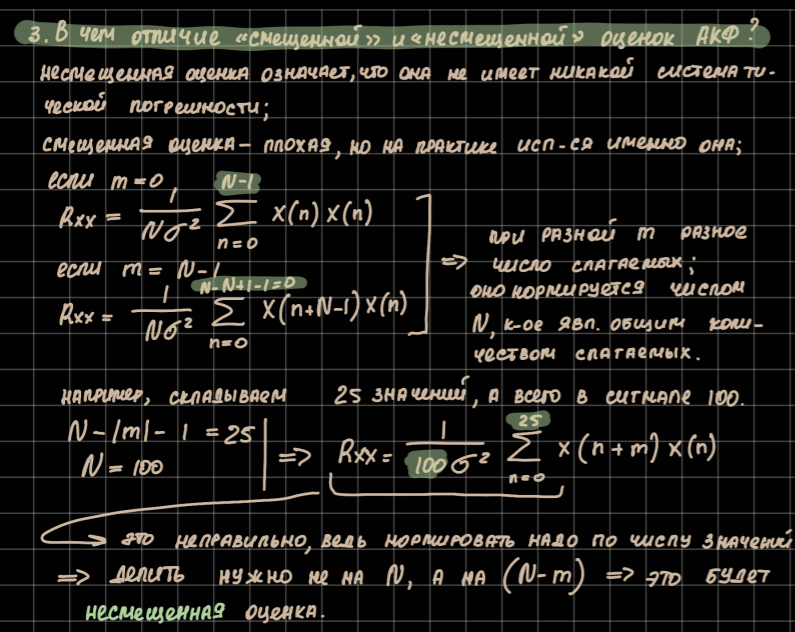 3. В чем отличие «смещенной» и «несмещенной» оценок АКФ?
несмещенная оценка означает, что она не имеет никакой система ти-
ческой погрешности;
смещенная оценка – плохая, но на практике исп-ся именно она;
если m = 0
Rxx = 1/(Nσ²) N-1 Σ n=0 x(n) x(n)
если m = N-1
Rxx = 1/(Nσ²) N-N+1-1=0 Σ n=0 x(n+N-1) x(n)
=> при разной m разное
число слагаемых;
оно нормируется числом
N, к-ое явл. общим коли-
чеством слагаемых.
например, складываем 25 значений, а всего в сигнале 100.
N-|m|-1 = 25
N = 100
=> Rxx = 1/(100σ²) 25 Σ n=0 x(n+m) x(n)
это неправильно, ведь нормировать надо по числу значений
=> делить нужно не на N, а на (N-m) => это будет
несмещенная оценка.